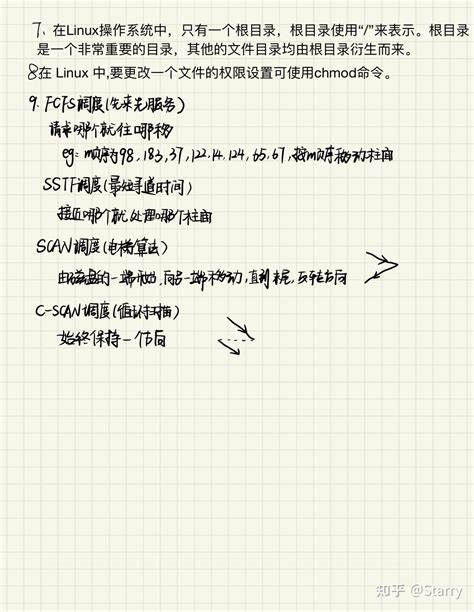 7、在Linux操作系统中，只有一个根目录，根目录使用“/”来表示。根目录
是一个非常重要的目录，其他的文件目录均由根目录衍生而来。
8在 Linux 中,要更改一个文件的权限设置可使用chmod命令。
9. FCFS调度(先来先服务)
请求哪个就往哪移
eg: 顺序为98, 183, 37, 122, 14, 124, 65, 67, 按顺序移动柱面
SSTF调度(最短寻道时间)
接近哪个就处理哪个柱面
SCAN调度(电梯算法)
由磁盘的一端出, 向另一端移动, 直到尾, 反转方向
C-SCAN调度(循环扫描)
始终保持一个方向
知乎 @Starry